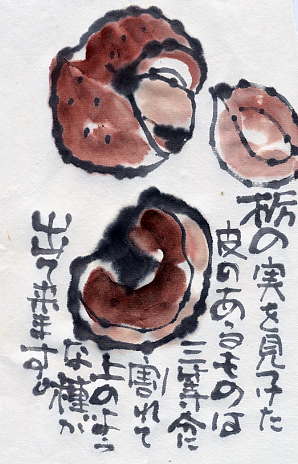 栃の実を見つた
皮のあるものは
三等分に
割れて
上のよう
な種が
出て来ます